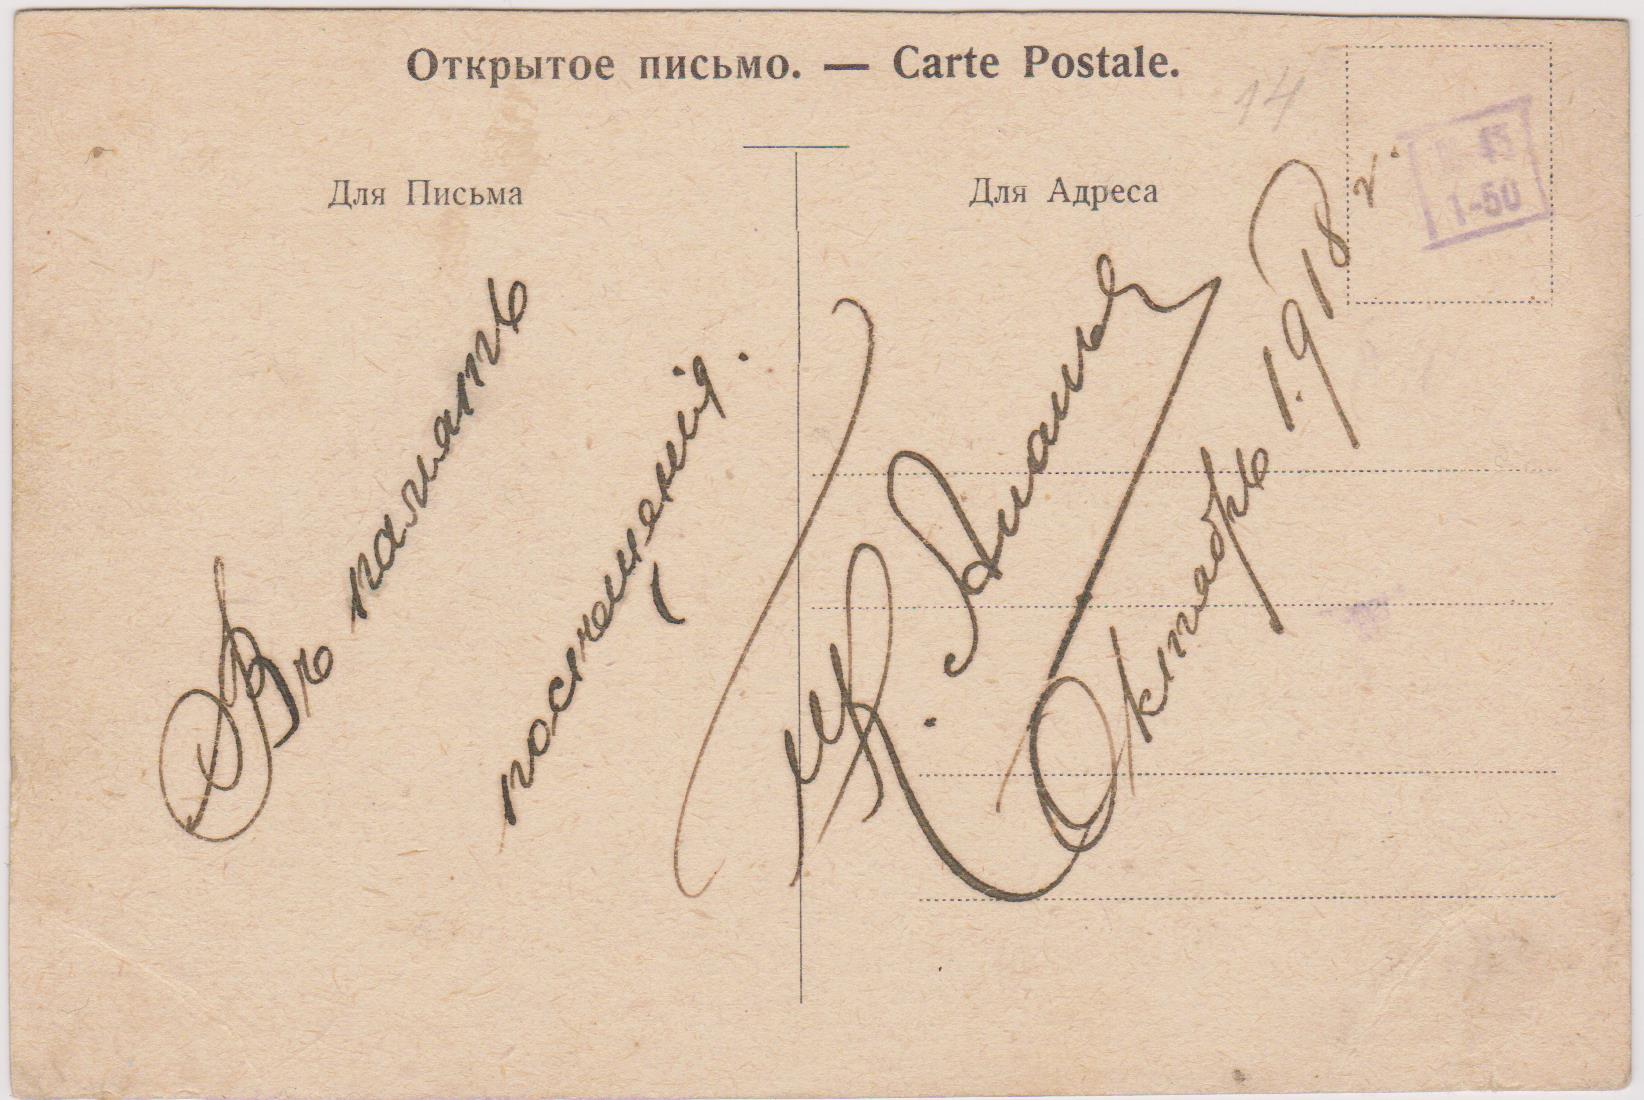 Открытое письмо. — Carte Postale.
14
Для Письма
Для Адреса
1-50
Въ память
посещенія.
Октябрь 1.918 г.